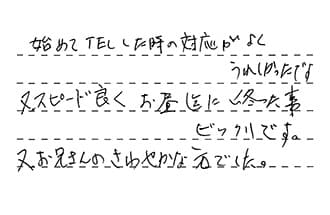 始めてTELした時の対応がよく
うれしかったです
又スピード良く お昼迄に終った事
ビックリです。
又お兄さんのさわやかな元でした。